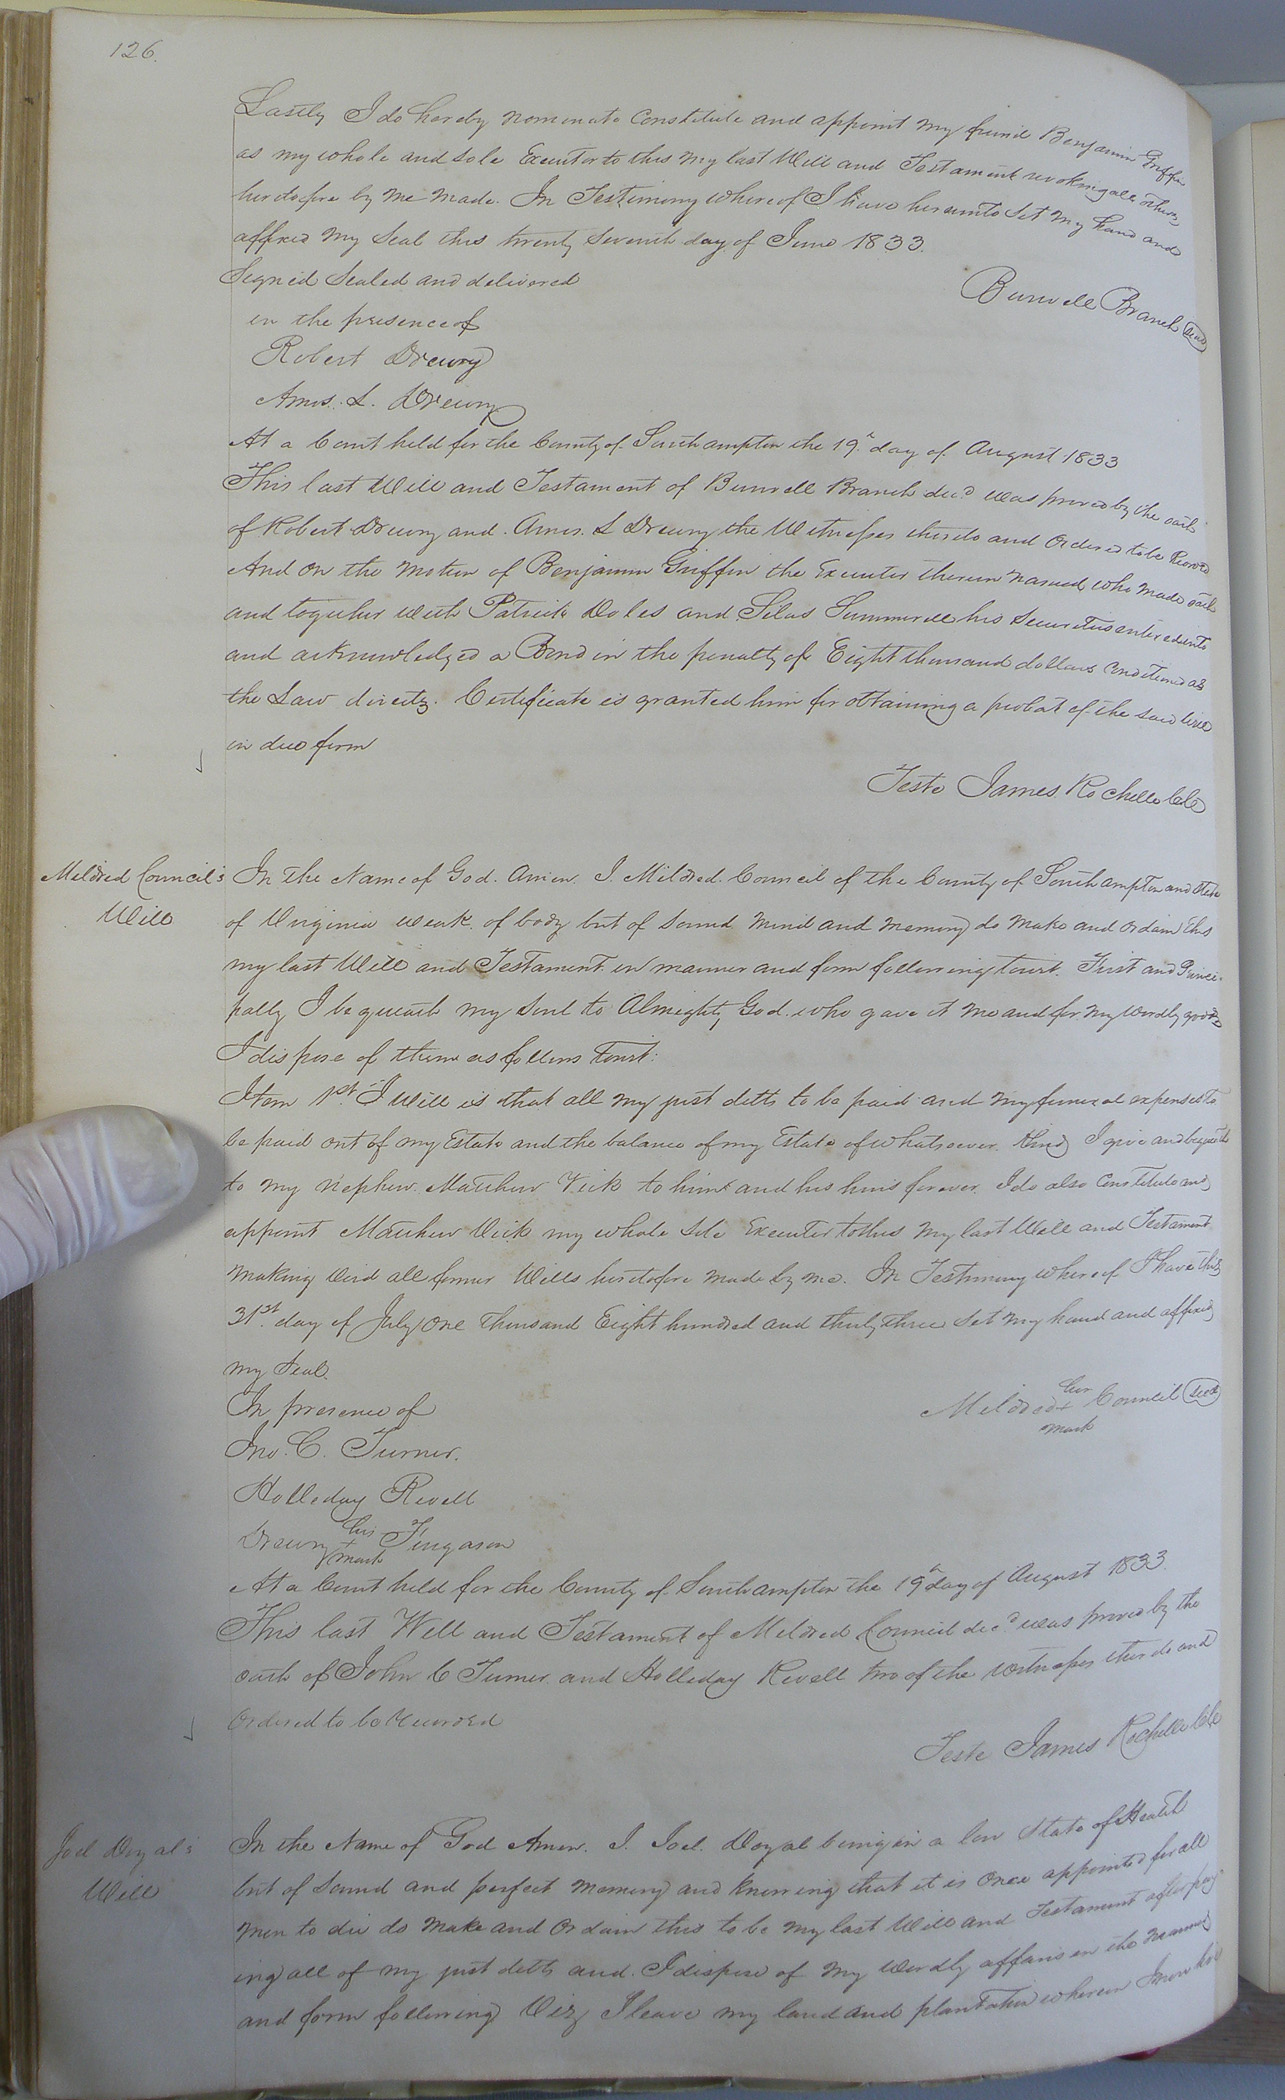 126.
Lastly I do hereby nominate Constitute and appoint my friend Benjamin Griffin
as my whole and sole Executor to this my last Will and Testament revoking all others
heretofore by me made. In Testimony whereof I have hereunto Set my hand and
affixed my Seal this twenty Seventh day of June 1833.
Signed Sealed and delivered
Burwell Branch Seal
in the presence of
Robert Drewry
Amos. L. Drewry
At a Court held for the County of Southampton the 19th day of August 1833
This last Will and Testament of Burwell Branch decd was proved by the oath
of Robert Drewry and Amos. L Drewry the Witnesses thereto and Ordered to be Record
And on the Motion of Benjamin Griffin the Executor therein named who made oath
and together with Patrick Doles and Silas Summerell his Securities entered into
and acknowledged a Bond in the penalty of Eight thousand dollars Conditioned as
the Law directs. Certificate is granted him for obtaining a probat of the said Will
in due form
Teste James Rochelle Clk
Mildred Council's
Will
In the Name of God. Amen. I. Mildred. Council of the County of Southampton and State
of Virginia weak. of body but of sound mind and memory do make and ordain this
my last Will and Testament in manner and form following towit. First and Princi-
pally I bequeath my Soul to Almighty God. who gave it me and for my wordly goods
I dispose of them as follows towit:
Item 1st. I Will is that all my just debts to be paid and my funeral expenses to
be paid out of my Estate and the balance of my Estate of whatsoever. Kind I give and bequeath
to my Nephew. Matthew Vick to him and his heirs forever. I do also Constitute and
appoint Matthew Vick my whole sole Executor to this my last Will and Testament
making void all former Wills heretofore made by me. In Testimony whereof I have this
31st. day of July One thousand Eight hundred and thirty three Set my hand and affixed
my Seal.
In presence of
Mildred her + mark Council Seal
Jno. C. Turner.
Holleday Revell
Drewry his + mark Furgason
At a Court held for the County of Southampton the 19th day of August 1833.
This last Will and Testament of Mildred Council decd was proved by the
oath of John C Turner and Holleday Revell two of the witnesses thereto and
Ordered to be Recorded
Teste James Rochelle Clk
Joel Doyal's
Will
In the Name of God Amen. I. Joel. Doyal being in a low State of Health
but of sound and perfect memory and knowing that it is Once appointed for all
men to die do make and Ordain this to be my last Will and Testament after pay-
ing all of my just debts and. I dispose of my wordly affairs in the manner
and form following Viz, I leave my land and plantation wherein I now live